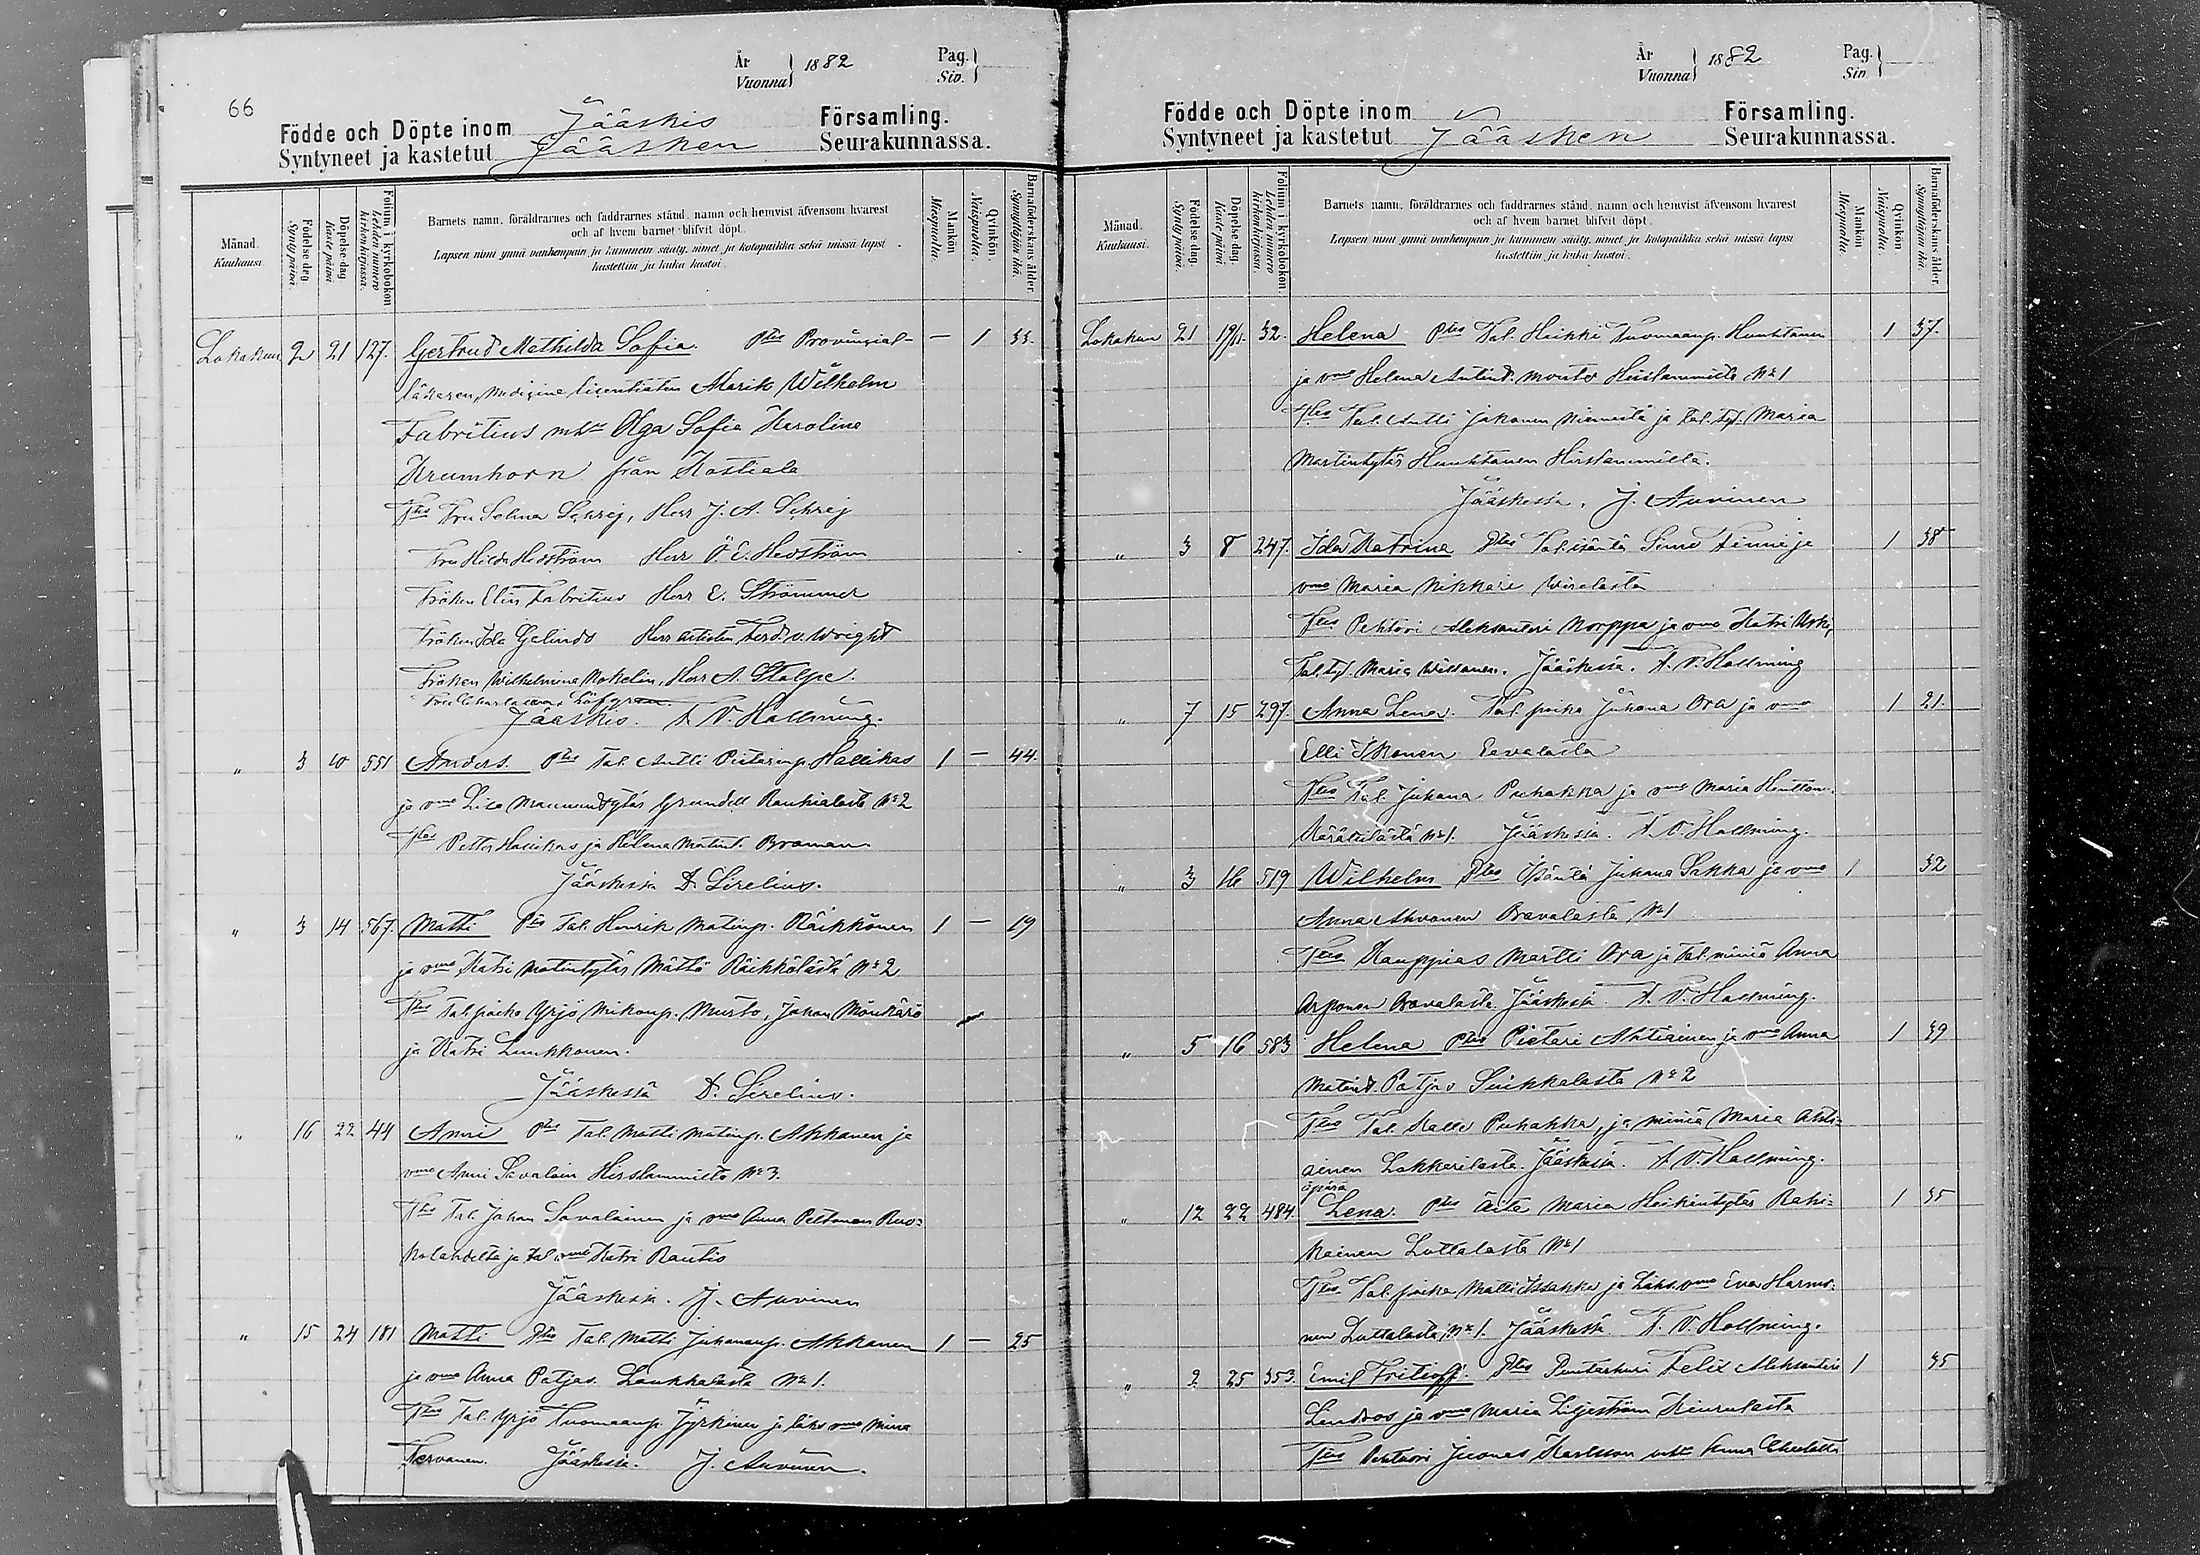 66
År
Vuonna 1882
Pag.
Siv.
Födde och Döpte inom Jääskis Församling.
Syntyneet ja kastetut Jääsken Seurakunnassa.
Månad.
Kuukausi.
Födelse dag.
Syntypäivä.
Döpelse dag.
Kaste päivä
Folium i kyrkobokon
Lehden numero
kirkonkirjassa.
Barnets namn, föräldrarnes och faddrarnes stånd, namn och hemvist äfvensom hvarest
och af hvem barnet blifvit döpt.
Lapsen nimi ynnä vanhempain ja kummein sääty, nimet ja kotopaikka sekä missä lapsi
kastettiin ja kuka kastoi.
Mankön
Miespuolta.
Qvinkön.
Naispuolta.
Barnaföderskans ålder
Synnyttäjän ikä.
Lokakuu 2 21 127. Gertrud Mathilda Sofia. Ptes Provinsial- — 1 33.
läkaren, Medizine licentiaten Alarik Wilhelm
Fabritius m hu Olga Sofia Karoline
Krumhorn från Kostiala
Ttes Fru Selma Schrej, Herr J. A. Schrej
Fru Hilda Hedström Herr O. E. Hedström
Fröken Elin Fabritius Herr E. Strömmer
Fröken Ida Gelinds Herr artisten Ferd. v. Wright
Fröken Wilhelmina Nokelin, Herr A. Stolpe.
Löfgren.
Jääskis. F. V. Hallming.
" 3 10 551 Anders. Ptes Tal. Antti Pieterinp. Hallikas 1 — 44.
ja vmo Lisa Maununtytär Grundell Rauhialasta No 2
Ttes Petter Hallikas ja Helena Matint. Broman
Jääskessä D. Sirelius.
" 3 14 567. Matti Ptes Tal. Henrik Matinp. Räikkönen 1 — 19
ja vmo Katri Matintytär Mättö Räikkölästä No 2
Ttes Tal. poika Yrjö Mikonp. Musto, Johan Mönkärö
ja Katri Luukkonen.
Jääskessä D. Sirelius.
" 16 22 44 Anni Ptes Tal. Matti Matinp. Akkanen ja
vmo Anni Savalain Hirslammilta No 3.
Ttes Tal. Johan Savalainen ja vmo Anna Peltonen Ruo-
kolahdelta ja Tal. vmo Katri Rautio
Jääskessä. J. Auvinen
" 15 24 181 Matti Ptes Tal. Matti Juhananp. Akkanen 1 — 25
ja vmo Anna Patjas Laukkalasta No 1.
Ttes Tal. Yrjö Tuomaanp. Jyrkinen ja läks vmo Mina
Tervonen. Jääskessä. J. Auvinen.
År
Vuonna 1882
Pag.
Siv
Födde och Döpte inom Församling.
Syntyneet ja kastetut Jääsken Seurakunnassa.
Månad.
Kuukausi.
Födelse dag.
Syntypäivä.
Döpelse dag.
Kaste päivä
Folium i kyrkobokon.
Lehden numero
kirkonkirjassa.
Barnets namn, föräldrarnes och faddrarnes stånd, namn och hemvist äfvensom hvarest
och af hvem barnet blifvit döpt.
Lapsen nimi ynnä vanhempain ja kummein sääty, nimet ja kotopaikka sekä missä lapsi
kastettiin ja kuka kastoi.
Mankön
Miespuolta.
Qvinkön
Naispuolta.
Barnaföderskans ålder.
Synnyttäjän ikä.
Lokakuu 21 19/11. 32. Helena Ptes Tal. Heikki Tuomaanp. Huuhtanen 1 37.
ja vmo Helena Antint. Monto Hirslammilta No 1
Ttes Tal. Antti Jakonen Niemestä ja tal. tyt. Maria
Martintytär Huuhtanen Hirslammilta.
Jääskessä. J. Auvinen
" 3 8 247. Ida Katrina Ptes Tal. isäntä Simo Tinni ja 1 38
vmo Maria Nikkari Wirolasta
Ttes Pehtori Aleksanteri Norppa ja vmo Katri Uski,
Tal. tyt. Maria Willanen. Jääskessä. F. V. Hallming
" 7 15 297. Anna Lena. Tal. poika Juhana Ora ja vmo 1 21.
Elli Ikonen Eevalasta
Ttes Tal. Juhana Puhakka ja vmo Maria Henttonen
Kärätilästä No 1. Jääskessä. F. V. Hallming.
" 3 16 519 Wilhelm Ptes Isäntä Juhana Sakka ja vmo 1 32
Anna Ahvonen Oravalasta No 1
Ttes Kauppias Martti Ora ja tal. miniä Anna
Arponen Oravalasta Jääskessä. F. V. Hallming.
" 5 16 583 Helena Ptes Pietari Ahtiainen ja vmo Anna 1 39
Matint. Patja Suikkalasta No 2
Ttes Tal. Kalle Puhakka, ja miniä Maria Ahti-
ainen Lakkerilasta. Jääskessä. F. V. Hallming.
" 12 22 484. äpärä Lena. Ptes Äite Maria Heikintytär Rahi- 1 35
kainen Lottalasta No 1
Ttes Tal. poika Matti Issakka ja Läks. vmo Eva Harmo-
nen Lottalasta, No 1. Jääskessä F. V. Hallming.
" 2. 25 353. Emil Fritioff. Ptes Puutarhuri Felix Aleksanteri 1 35
Lindroos ja vmo Maria Liljeström Kiurulasta
Ttes Pehtori Juonas Karlsson m hu Anna Charlotta